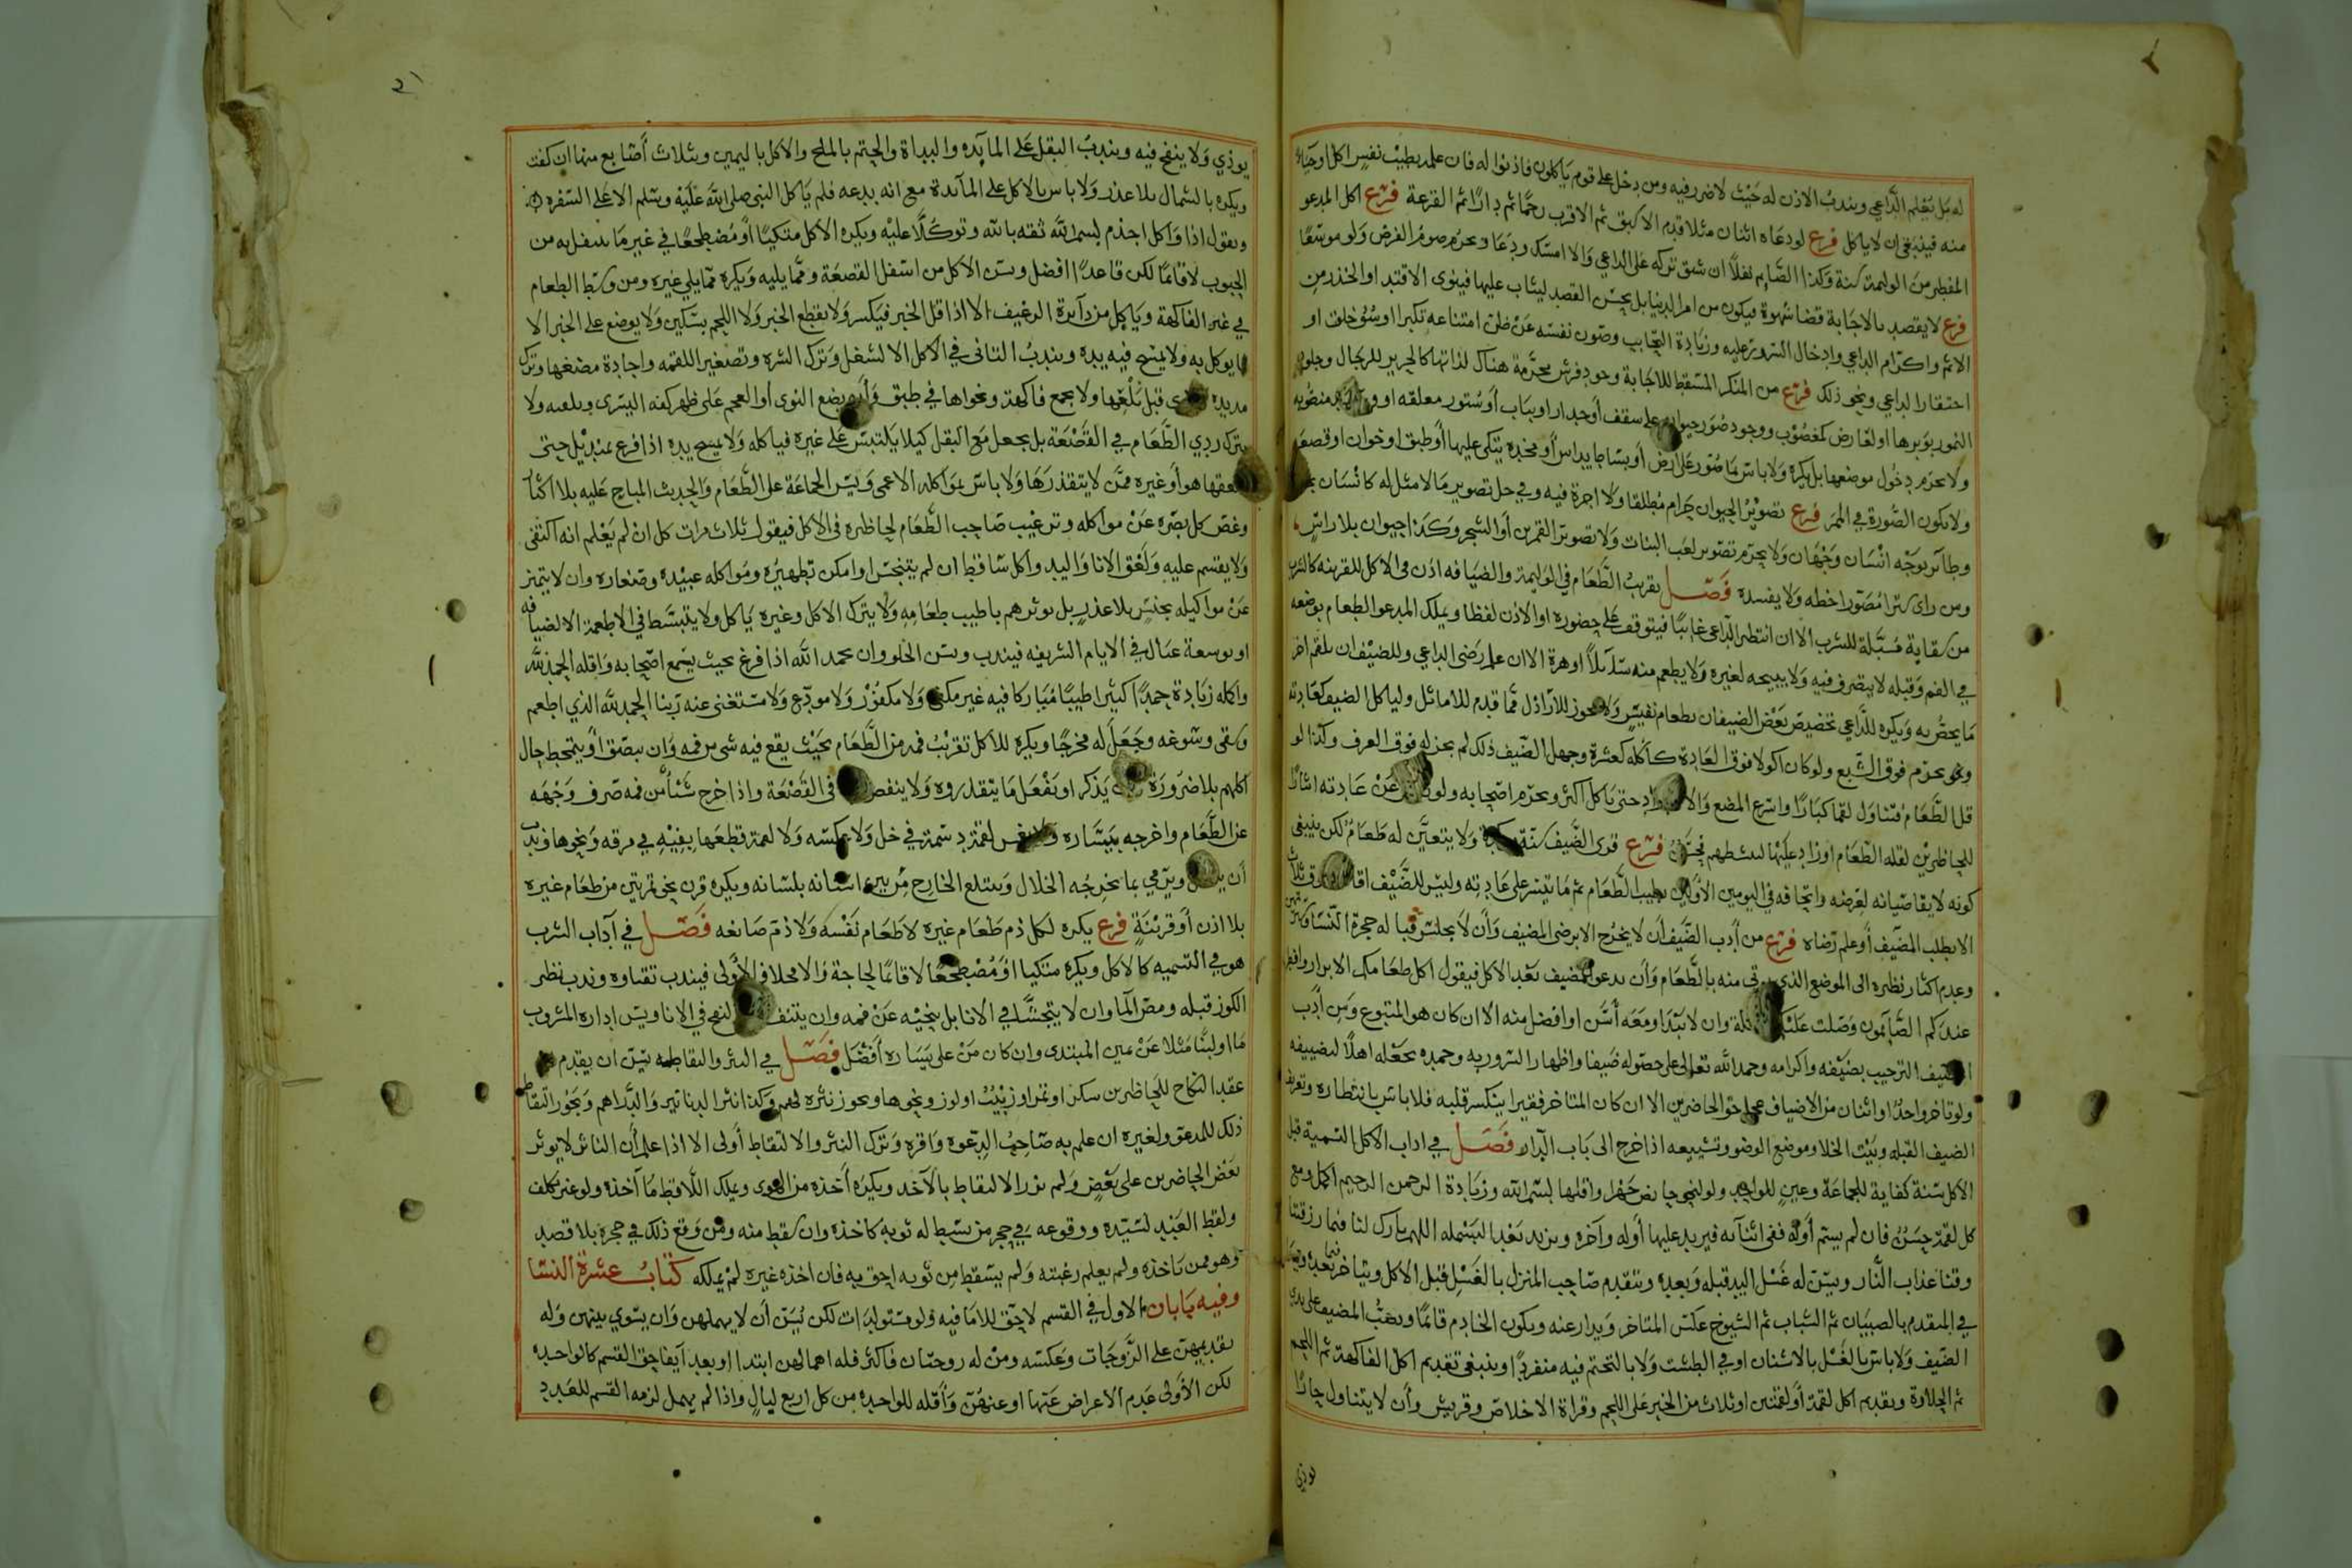 له بل يعلم الداعي ويندب الاذن له حيث لا ضرر فيه ومن دخل على قوم ياكلون فاذنوا له فان علمه بطيب نفس اكل اوحياء
منه فينبغي ان لا ياكل فرع لو دعاه اثنان مثلا قدم الاسبق ثم الاقرب رحما ثم دارا ثم القرعة فرع اكل المدعو
المفطر من الوليمة سنة وكذا الصايم نفلا ان شق تركه على الداعي والا امسك ودعا ويحرم صوم الفرض ولو موسعا
فرع لا يقصد بالاجابة قضا شهوة فيكون من امر الدنيا بل يحسن القصد ليثاب عليها فينوي الاقتدا والحذر من
الاثم واكرام الداعي وادخال السرور عليه وزيادة التحابب وصون نفسه عن ظن امتناعه تكبرا اوسؤ خلق او
احتقار الداعي ونحو ذلك فرع من المنكر المسقط للاجابة وجود فرش محرمة هناك لذاتها كالحرير للرجال وجلود
النمور بوبرها او لعارض كمغصوب ووجود صور حيوان على سقف أو جدار او بباب أو ستور معلقه او منصوبه
ولا يحرم دخول موضعها بل يكره ولا باس بما صور على ارض أو بساط يداس أو مخده يتكى عليها أو طبق او خوان او قصعه
ولا بكون الصورة في الممر فرع تصوير الحيوان حرام مطلقا ولا اجرة فيه وفي حل تصوير ما لا مثل له كانسان
وطائر بوجه انسان وجهان ولا يحرم تصوير لعب البنات ولا تصوير القمرين أو الشجر وكذا حيوان بلا راس
ومن راى سترا مصورا حطه ولا يفسده فصل تقريب الطعام في الوليمة والضيافه اذن في الاكل للقرينه كالشرب
من سقاية مسبلة للشرب الا ان انتظر الداعي غائبا فيتوقف على حضوره او الاذن لفظا ويملك المدعو الطعام بوضعه
في الفم وقبله لا يتصرف فيه ولا يبيحه لغيره ولا يطعم منه سائلا او هرة الا ان علم رضى الداعي وللضيفان يلقم اخر
ما يخص به ويكره للداعي تخصيص بعض الضيفان بطعام نفيس ولا يجوز للاراذل مما قدم للاماثل ولياكل الضيف كعادته
ونحو يحرم فوق الشبع ولو كان اكولا فوق العادة كأكله كعشرة وجهل المضيف ذلك لم يجز له فوق العرف وكذا لو
قل الطعام فتناول لقما كبارا واسرع المضغ حتى ياكل اكثر ويحرم اصحابه ولو عن عادته ايثارا
للحاضرين لقله الطعام او زاد عليها لينشطهم فحسن فرع قرى الضيف سنة ولا يتعين له طعام لكن ينبغي
كونه لا يقا صيانه لعرضه واتحافه في اليومين الأولين بطيب الطعام ثم ما يتيسر على عادته وليس للضيف اقامة فوق ثلاث
الا بطلب المضيف أو علم رضاه فرع من أدب الضيف أن لا يخرج الا برضى المضيف وأن لا يجلس قبالة حجرة النسا
وعدم اكثار نظره الى الموضع الذي يوتى منه بالطعام وأن يدعو للمضيف بعد الاكل فيقول اكل طعامكم الابرار وافطر
عندكم الصائمون وصلت عليكم وان لا يبتدا ومعه أسن او افضل منه الا ان كان هو المتبوع ومن أدب
المضيف الترحيب بضيفه واكرامه وحمد الله تعالى على حصوله ضيفا واظهار السرور به وحمده بجعله اهلا لتضييفه
ولو تاخر واحد او اثنان من الاضياف عجل حق الحاضرين الا ان كان المتاخر فقيرا ينكسر قلبه فلا باس بانتظاره وتعريف
الضيف القبله وبيت الخلا وموضع الوضو وتشييعه اذا خرج الى باب الدار فصل في اداب الاكل التسمية قبل
الاكل سنة كفاية للجماعة وعين للواحد ولو لنحو حائض جهرا واقلها بسم الله وزيادة الرحمن الرحيم اكمل ومع
كل لقمة حسن فان لم يسم أوله ففي اثنائه فيزيد عليها أوله وآخره ويزيد بعد البسمله اللهم بارك لنا فيما رزقتنا
وقنا عذاب النار ويسن له غسل اليد قبله وبعده ويتقدم صاحب المنزل بالغسل قبل الاكل ويتاخر بعده
في المتقدم بالصبيان ثم الشباب ثم الشيوخ عكس المتاخر ويدار عنه ويكون الخادم قائما ويصب المضيف على يدي
الضيف ولا باس بالغسل بالاشنان او في الطست ولا بالتختم فيه منفردا وينبغي تقديم اكل الفاكهة ثم اللحم
ثم الحلاوة وتقديم اكل لقمة أو لقمتين او ثلاث من الخبز على اللحم وقراة الاخلاص وقريش وأن لا يتناول حارا
يوذي
٢١
يوذي ولا ينفخ فيه ويندب البقل على المايده والبداة والختم بالملح والاكل باليمين وبثلاث أصابع منها ان كفت
ويكره بالشمال بلا عذر ولا باس بالاكل على المائدة مع انه بدعه فلم ياكل النبي صلى الله عليه وسلم الا على السفره
ويقول اذا واكل اجذم بسم الله ثقه بالله وتوكلا عليه ويكره الاكل متكيا أو مضطجعا في غير ما يتنفل به من
الحبوب لا قائما لكن قاعدا افضل ويسن الاكل من اسفل القصعة ومما يليه ويكره مما يلي غيره ومن وسط الطعام
في غير الفاكهة وياكل من دائرة الرغيف الا اذا قل الخبز فيكسر ولا يقطع الخبز ولا اللحم بسكين ولا يوضع على الخبز الا
ما يوكل به ولا يمسح فيه يده ويندب التاني في الاكل الا لشغل وترك الشره وتصغير اللقمه واجادة مضغها وترك
مد يده قبل بلعها ولا يجمع فاكهة ونحواها في طبق وأن يضع النوى أو العجم على ظهر كفه اليسرى ويلقيه ولا
يترك ردي الطعام في القصعة بل يجعل مع البقل كيلا يلتبس على غيره فياكله ولا يمسح يده اذا فرغ بمنديل حتى
يلعقها هو أو غيره ممن لا يتقذرها ولا باس بمواكله الاعمى ويسن الجماعة على الطعام والحديث المباح عليه بلا اكثار
وغض كل بصره عن مواكله وترغيب صاحب الطعام لحاضره في الاكل فيقول ثلاث مرات كل ان لم يعلم انه اكتفى
ولا يقسم عليه ولعق الانا واليد واكل ساقط ان لم يتنجس او امكن تطهيره ومواكله عبيده وصغاره وان لا يتميز
عن مواكيله بجنس بلا عذر بل يوثرهم باطيب طعامه ولا يترك الاكل وغيره ياكل ولا يتبسط في الاطعمة الا لضيافه
او توسعة عيال في الايام الشريفه فيندب ويسن الخلو وان يحمد الله اذا فرغ بحيث يسمع اصحابه واقله الحمد لله
واكمله زيادة حمدا كثيرا طيبا مباركا فيه غير مكفي ولا مكفور ولا مودع ولا مستغنى عنه ربنا الحمد لله الذي اطعم
وسقى وسوغه وجعل له مخرجا ويكره للاكل تقريب فمه من الطعام بحيث يقع فيه شي من فمه وان يبصق أو يتمخط حال
اكلهم بلا ضرورة يذكر او يفعل ما يتقذروه ولا ينفض في القصعة واذا اخرج شيئا من فمه صرف وجهه
عن الطعام واخرجه بيساره ولا يغمس لقمة دسمة في خل ولا عكسه ولا لقمة قطعها بفيه في مرقه ونحوها وندب
أن ويرمي بما يخرجه الخلال ويبتلع الخارج من بين اسنانه بلسانه ويكره قرن نحو تمرتين من طعام غيره
بلا اذن أو قرينة فرع يكره لكل ذم طعام غيره لا طعام نفسه ولا ذم صانعه فصل في آداب الشرب
هو في التسميه كالاكل ويكره متكيا أو مضطجعا لا قائما لحاجة والا فخلاف الأولى فيندب تقياوه وندب نظر
الكوز قبله ومص الما وان لا يتجشا في الانا بل ينحيه عن فمه وان يتنفس النفخ في الانا ويسن اداره المشروب
ما او لبنا مثلا عن يمين المبتدى وان كان من على يساره أفضل فصل في النثر والتقاطه يسن ان يقدم
عقد النكاح للحاضرين سكر او تمر او زبيب او لوز ونحوها ويجوز نثره لهم وكذا نثر الدنانير والدراهم ويجوز التقاط
ذلك للمدعو ولغيره ان علم به صاحب الدعوه واقره وترك النثر والالتقاط أولى الا اذا علم أن الناثر لا يوثر
بعض الحاضرين على بعض ولم يزر الالتقاط بالآخذ ويكره أخذه من الهوى ويملك اللاقط ما آخذه ولو غير مكلف
ولقط العبد لسيده ووقوعه في حجر من بسط له ثوبه كاخذه وان سقط منه ومن وقع ذلك في حجره بلا قصد
وهو ممن ياخذه ولم يعلم رغبته ولم يسقط من ثوبه احق به فان اخذه غيره لم يملكه كتاب عشرة النسا
وفيه بابان الاول في القسم لا حق للاما فيه ولو مستولدات لكن يسن أن لا يهملهن وان يسوي بينهن وله
تقديمهن على الزوجات وعكسه ومن له زوجتان فاكثر فله اهمالهن ابتدا او بعد ايفا حق القسم كالواحده
لكن الأولى عدم الاعراض عنها او عنهن وأقله للواحده من كل اربع ليال واذا لم يهمل لزمه القسم للعدد